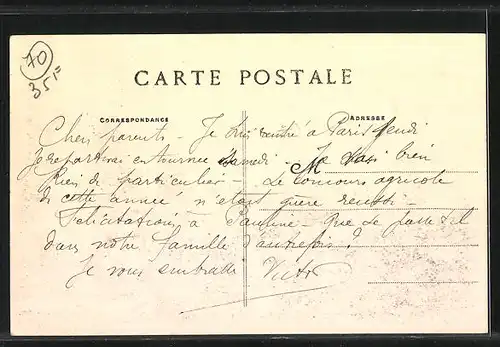 70
35F
CARTE POSTALE
CORRESPONDANCE
ADRESSE
Chers parents - Je suis rentré à Paris Jeudi
Je repartirai en tournée Samedi - Je vais bien
M
Rien de particulier - Le concours agricole
de cette année n'était guère réussi -
Félicitations à Pauline - Que se passe t-il
dans notre famille d'autrefois ?
Je vous embrasse Victor